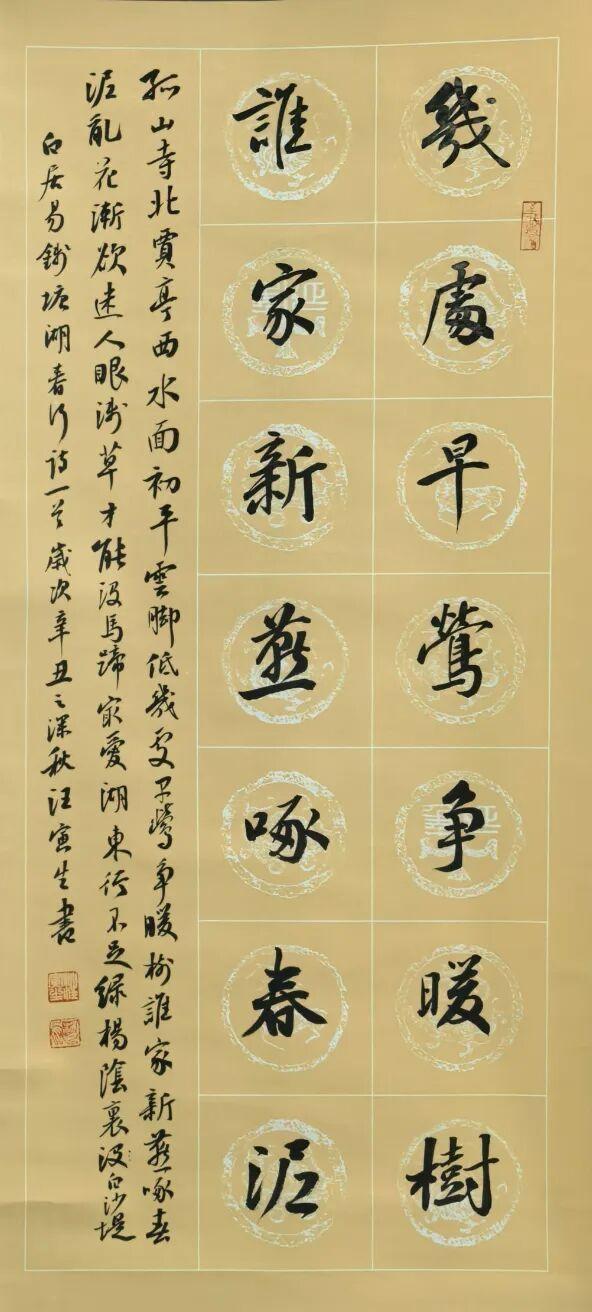 幾處早鶯争暖樹
誰家新燕啄春泥
孤山寺北賈亭西水面初平雲脚低幾處早鶯争暖樹誰家新燕啄春
泥亂花漸欲迷人眼淺草才能没馬蹄最愛湖東行不足緑楊陰裏没白沙堤
白居易錢塘湖春行詩一首歲次辛丑之深秋汪寅生書